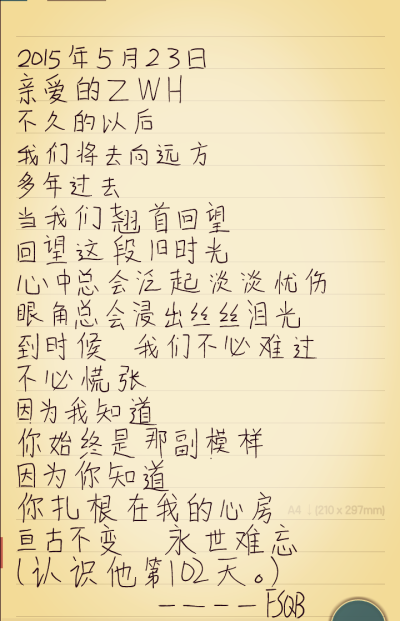 2015年5月23日
亲爱的ZWH
不久的以后
我们将去向远方
多年过去
当我们翘首回望
回望这段旧时光
心中总会泛起淡淡忧伤
眼角总会浸出丝丝泪光
到时候 我们不必难过
不必慌张
因为我知道
你始终是那副模样
因为你知道
你扎根在我的心房
A4 | (210 x 297mm)
亘古不变 永世难忘
(认识他第102天。)
————FSQB